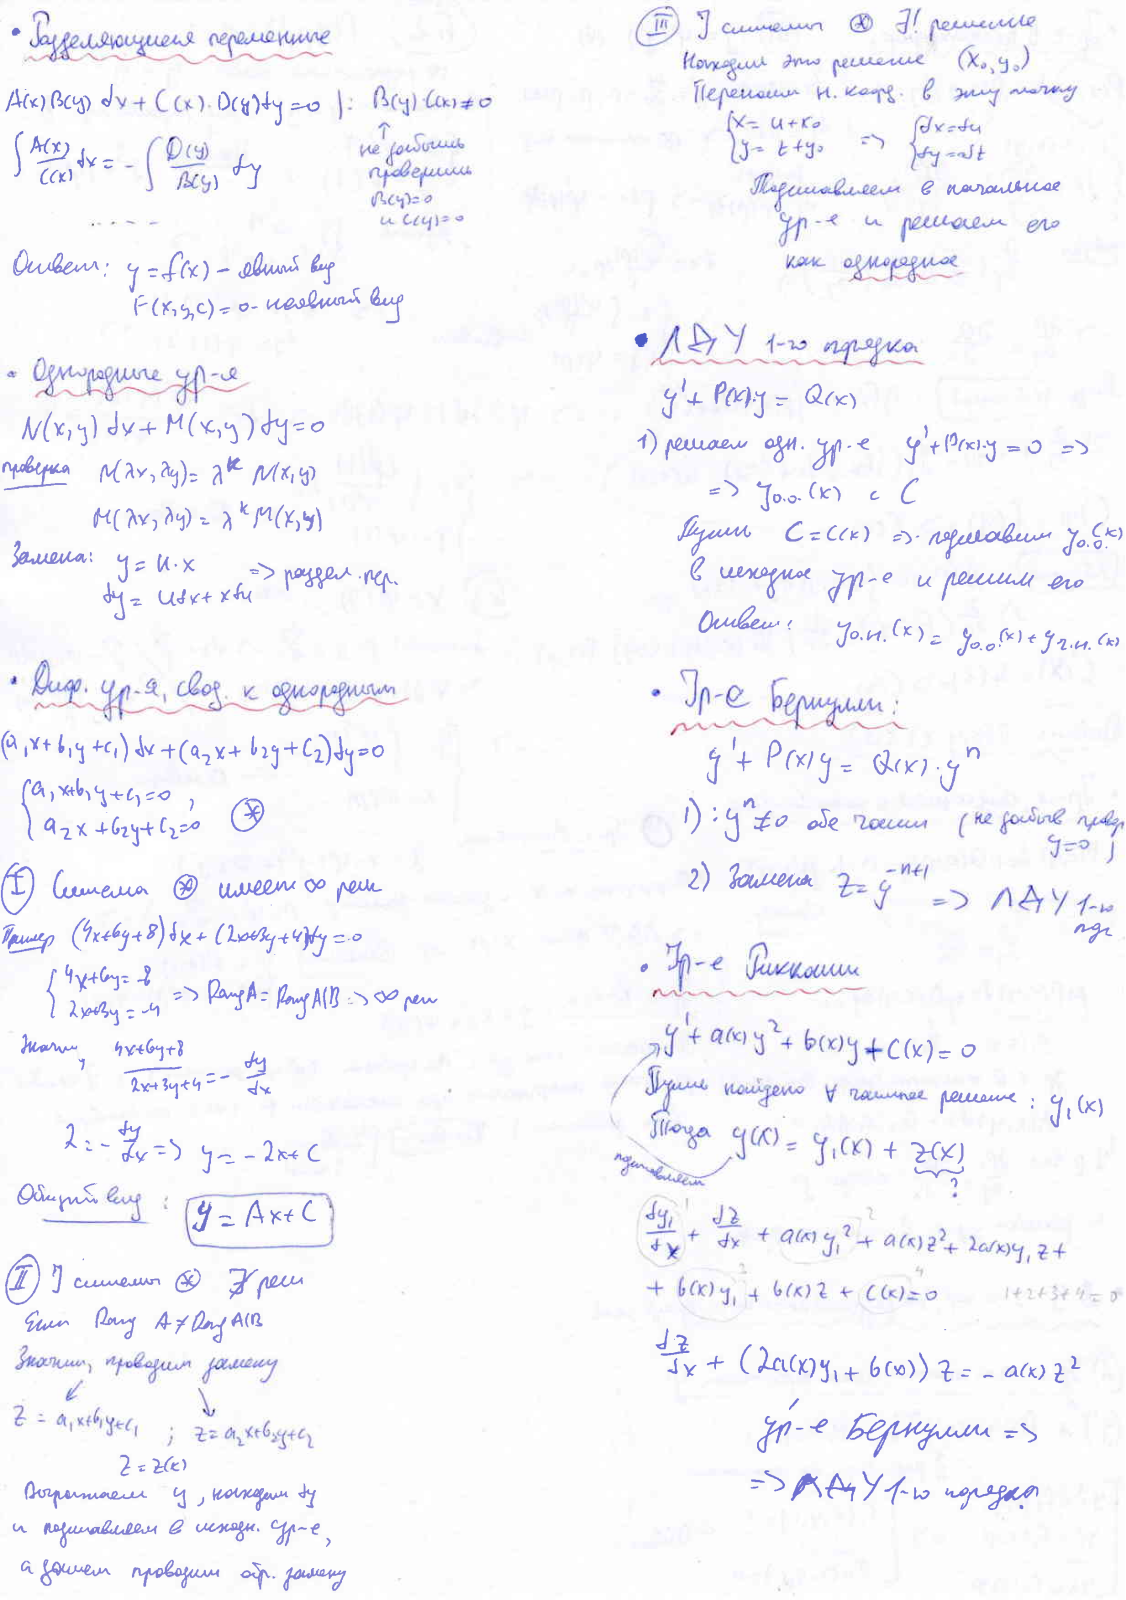 • Разделяющиеся переменные
A(x)B(y) dx + C(x)·D(y)dy = 0 |: B(y)·C(x) ≠ 0
∫ A(x)/C(x) dx = - ∫ D(y)/B(y) dy
↑
не забыть
проверить
B(y)=0
и C(y)=0
. . . .
Ответ: y = f(x) – явный вид
F(x,y,c) = 0 - неявный вид
• Однородные ур-я
N(x,y) dx + M(x,y) dy = 0
проверка N(λx, λy) = λ^k N(x,y)
M(λx, λy) = λ^k M(x,y)
Замена: y = u·x => раздел. пер.
dy = udx + xdu
• Диф. ур-я, свод. к однородным
(a₁x + b₁y + c₁) dx + (a₂x + b₂y + c₂) dy = 0
{ a₁x + b₁y + c₁ = 0 ,
{ a₂x + b₂y + c₂ = 0 (*)
(I) Система (*) имеет ∞ реш
Пример (4x+6y+8) dx + (2x+3y+4) dy = 0
{ 4x+6y = -8
{ 2x+3y = -4 => Rang A = Rang A|B => ∞ реш
Значит, (4x+6y+8)/(2x+3y+4) = - dy/dx
2 = - dy/dx => y = - 2x + C
Общий вид : y = Ax + C
(II) У системы (*) ∄ реш
Если Rang A ≠ Rang A|B
Значит, проводим замену
↙ ↘
z = a₁x+b₁y+c₁ ; z = a₂x+b₂y+c₂
z = z(x)
Выражаем y, находим dy
и подставляем в исходн. ур-е,
а затем проводим обр. замену
(III) У системы (*) ∃! решение
Находим это решение (x₀, y₀)
Переносим н. коорд. в эту точку
{ x = u + x₀
{ y = t + y₀ => { dx = du
{ dy = dt
Подставляем в начальное
ур-е и решаем его
как однородное
• ЛДУ 1-го порядка
y' + P(x)·y = Q(x)
1) решаем одн. ур-е y' + P(x)·y = 0 =>
=> y₀.₀.(x) с C
Пусть C = C(x) => подставим y₀.₀.(x)
в исходное ур-е и решим его
Ответ: y₀.н.(x) = y₀.₀.(x) + yч.н.(x)
• Ур-е Бернулли:
y' + P(x)y = Q(x)·yⁿ
1) : yⁿ ≠ 0 обе части (не забыв провер
y=0)
2) Замена z = y^(-n+1) => ЛДУ 1-го
пор.
• Ур-е Риккати
y' + a(x)y² + b(x)y + c(x) = 0
Пусть найдено ∀ частное решение : y₁(x)
Тогда y(x) = y₁(x) + z(x)
?
подставляем
dy₁/dx ¹ + dz/dx + a(x)y₁² ² + a(x)z² + 2a(x)y₁z +
+ b(x)y₁ ³ + b(x)z + c(x) ⁴ = 0 1+2+3+4=0
dz/dx + (2a(x)y₁ + b(x)) z = - a(x) z²
ур-е Бернулли =>
=> ЛДУ 1-го порядка